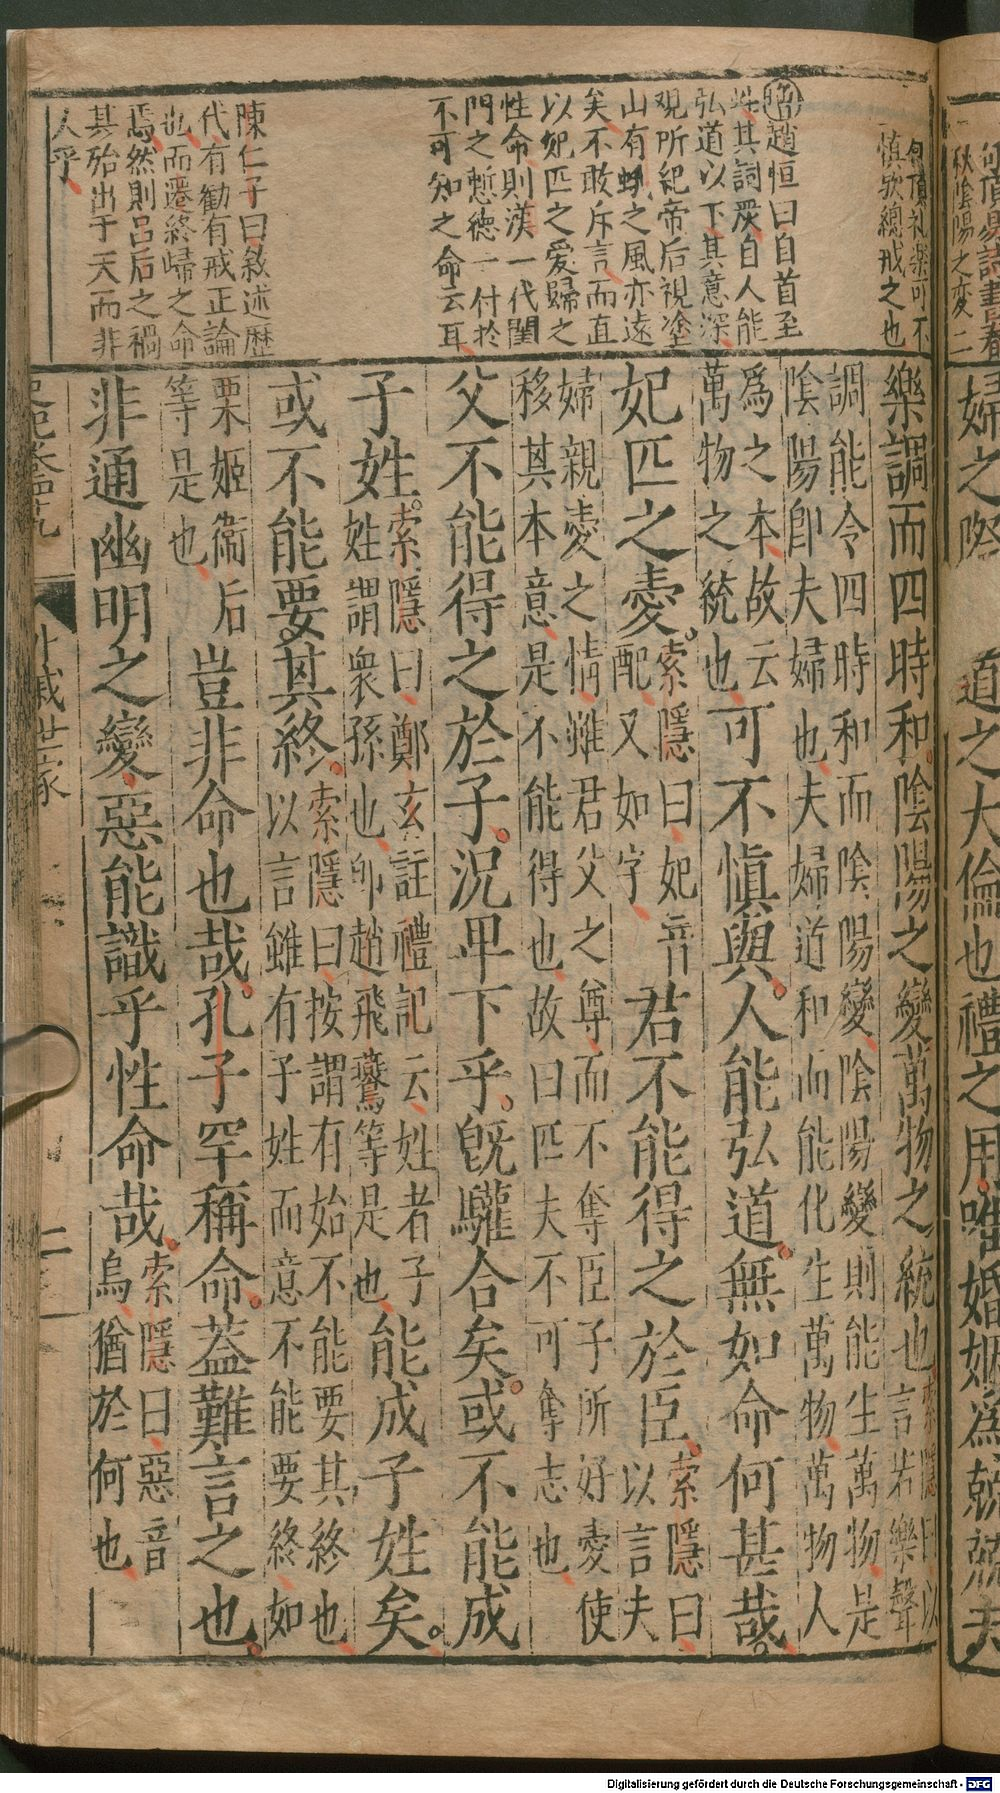 婦之際
道之大倫也禮之用唯婚姻為兢兢夫
秋陰陽之変二
慎欤總戒之也
趙恒曰自首至
姓其詞衆自人能
弘道以下其意深
观所紀帝后視塗
山有娀之風亦遠
矣不敢斥言而直
以妃匹之爱歸之
性命則漢一代閨
門之慙德一付於
不可知之命云耳
陳仁子曰敘述歴
代有勸有戒正論
也而遷終歸之命
焉然則呂后之禍
其殆出于天而非
人乎
樂調而四時和陰陽之變萬物之統也索隱曰以
言若樂聲
調能令四時和而陰陽變陰陽變則能生萬物是
陰陽即夫婦也夫婦道和而能化生萬物萬物人
為之本故云
萬物之統也
可不慎與人能弘道無如命何甚哉
妃匹之愛索隱曰妃音
配又如字
君不能得之於臣索隱曰
以言夫
婦親愛之情雖君父之尊而不奪臣子所好愛使
移其本意是不能得也故曰匹夫不可奪志也
父不能得之於子況卑下乎旣驩合矣或不能成
子姓索隱曰鄭玄註禮記云姓者子
姓謂衆孫也卽趙飛鷰等是也
能成子姓矣
或不能要其終索隱曰按謂有始不能要其終也
以言雖有子姓而意不能要終如
栗姬衛后
等是也
豈非命也哉孔子罕稱命蓋難言之也
非通幽明之變惡能識乎性命哉索隱曰惡音
烏猶於何也
外戚世家
二
Digitalisierung gefördert durch die Deutsche Forschungsgemeinschaft - DFG